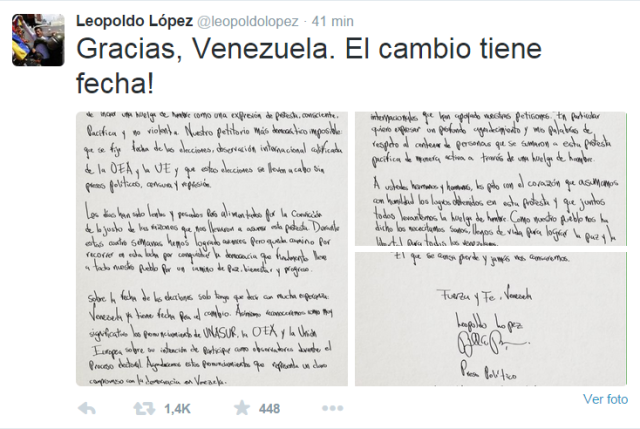 Leopoldo López @leopoldolopez · 41 min
Gracias, Venezuela. El cambio tiene
fecha!
de iniciar una huelga de hambre como una expresión de protesta, consciente,
Pacífica y no violenta. Nuestro petitorio más democrático imposible:
que se fije fecha de las elecciones, observación internacional calificada
de la OEA y la UE y que estas elecciones se lleven a cabo sin
presos políticos, censura y represión.
Los días han sido lentos y pesados pero alimentados por la convicción
de lo justo de las razones que nos llevaron a asumir esta protesta. Durante
estas cuatro semanas hemos logrado avances pero queda camino por
recorrer en esta lucha por conquistar la democracia que finalmente lleve
a todo nuestro pueblo por un camino de Paz, bienestar, y progreso.
Sobre la fecha de las elecciones solo tengo que decir con mucha esperanza:
Venezuela ya tiene fecha para el cambio. Asimismo reconocemos como muy
significativo los pronunciamiento de UNASUR, la OEA y la Unión
Europea sobre su intención de participar como observadores durante el
Proceso electoral. Agradecemos estos pronunciamientos que representa un claro
compromiso con la democracia en Venezuela.
internacionales que han apoyado nuestras peticiones. En particular
quiero expresar un profundo agradecimiento y mis palabras de
respeto al centenar de personas que se sumaron a esta protesta
pacífica de manera activa a través de una huelga de hambre.
A ustedes hermanos y hermanas, les pido con el corazón que asumamos
con humildad los logros obtenidos en esta protesta y que juntos
todos levantemos la huelga de hambre. Como nuestro pueblo nos ha
dicho los necesitamos sanos, llenos de vida para lograr la paz y la
libertad para todos los venezolanos.
El que se cansa pierde y jamás nos cansaremos.
Fuerza y Fe, Venezuela
Leopoldo López
Preso Político
1,4K 448
Ver foto